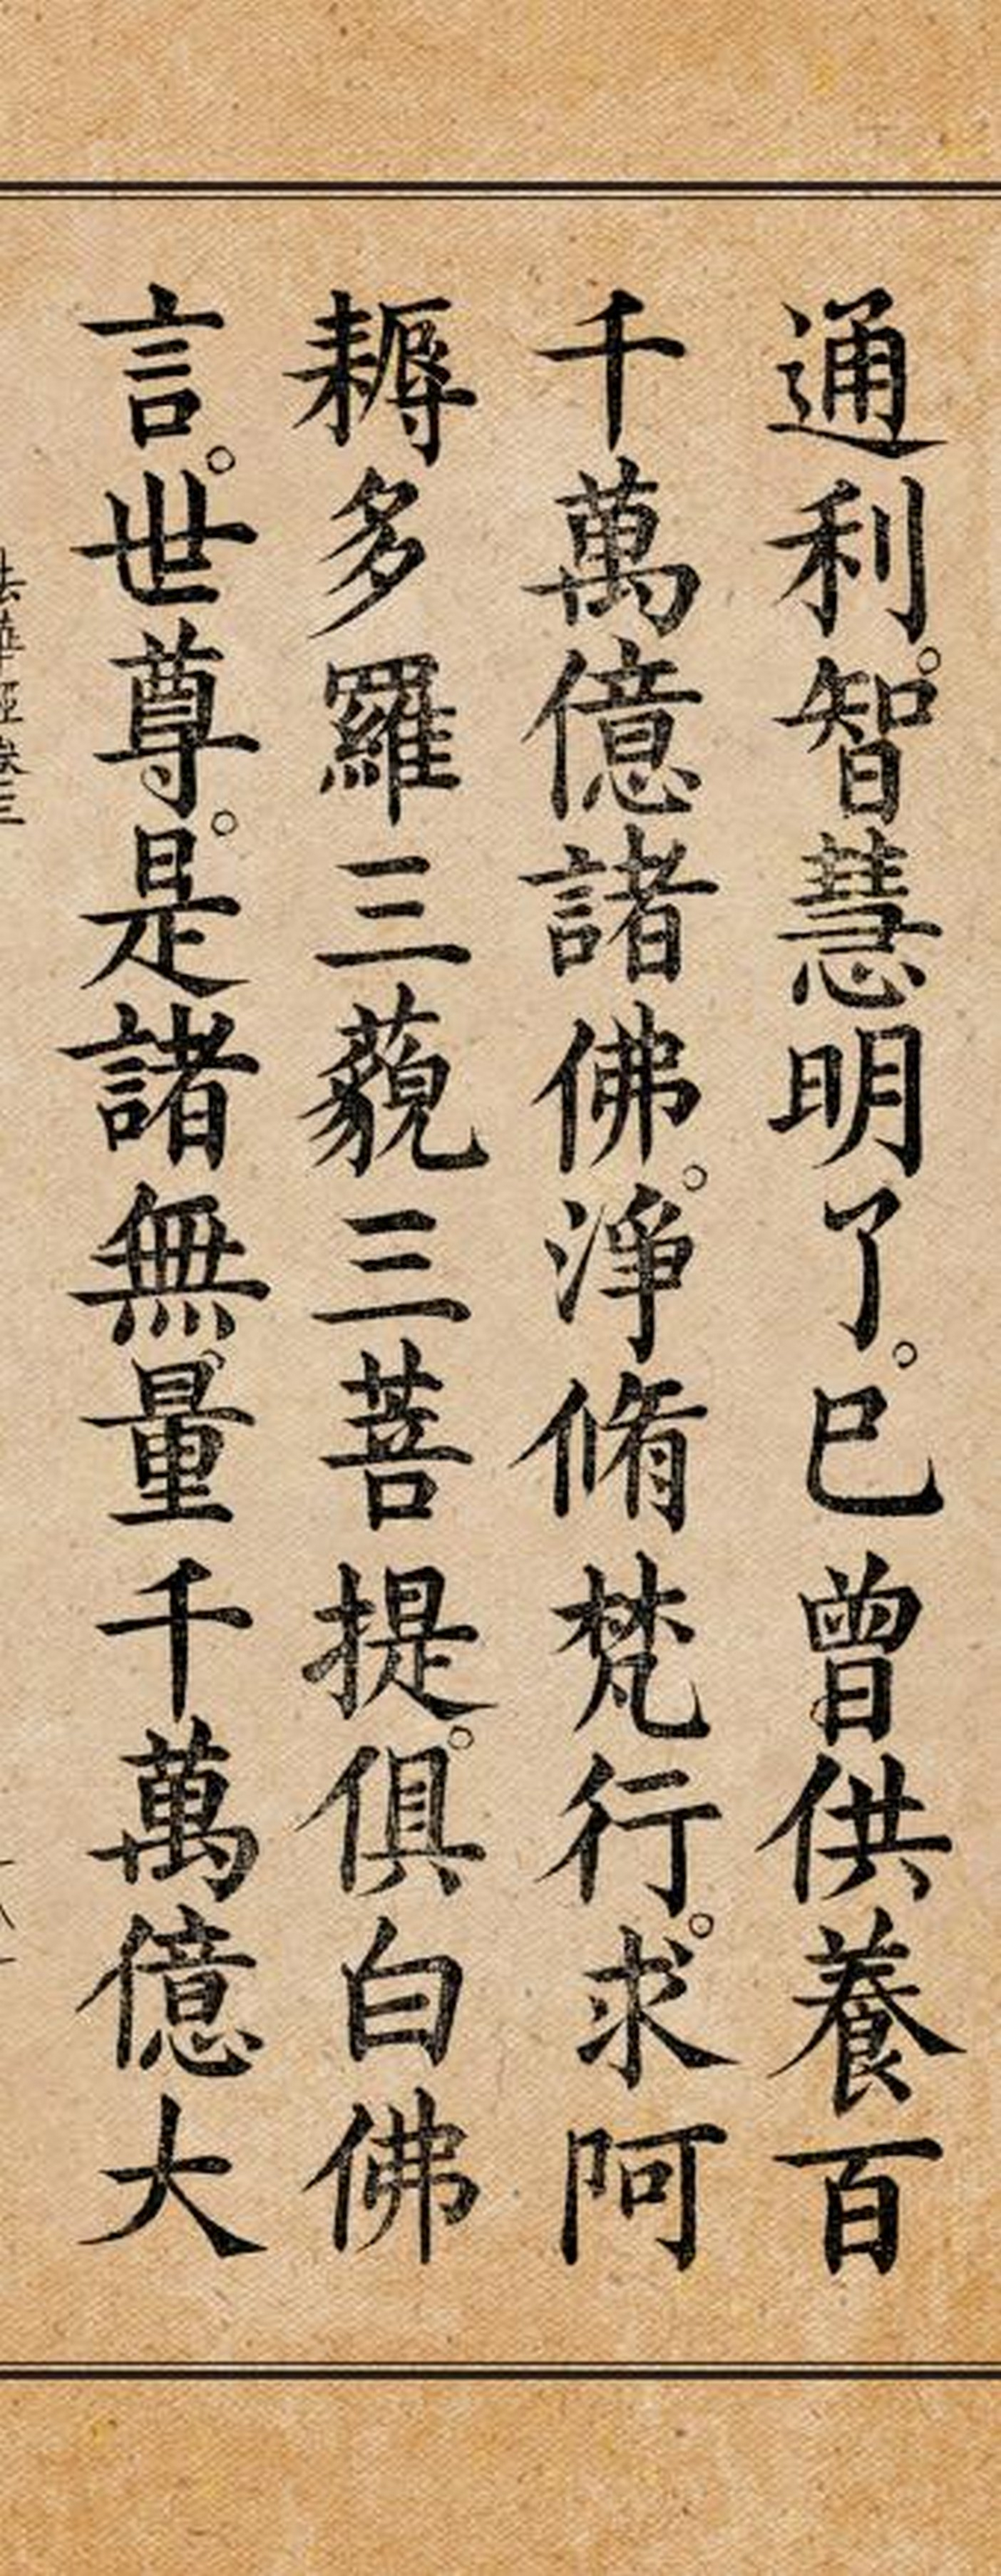 通利。智慧明了。已曾供養百
千萬億諸佛。淨脩梵行。求阿
耨多羅三藐三菩提。俱白佛
言。世尊。是諸無量千萬億大
法華經卷三